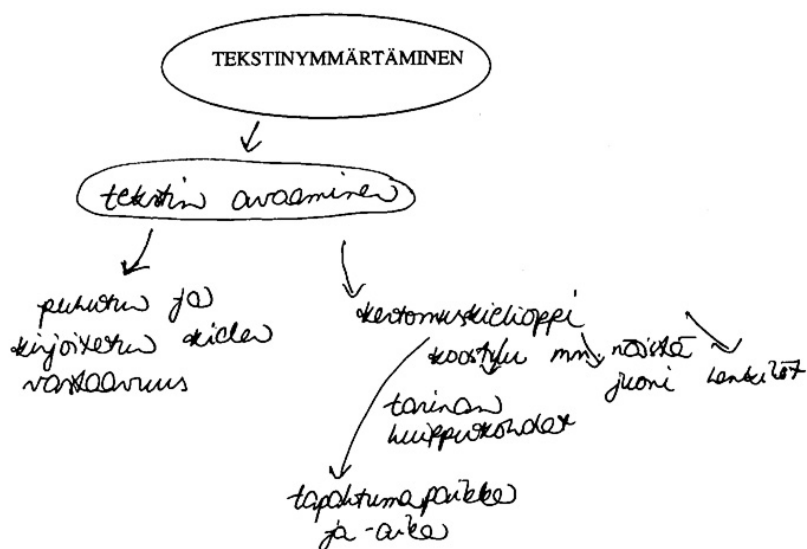 TEKSTINYMMÄRTÄMINEN
tekstin avaaminen
puhutun ja
kirjoitetun kielen
vastaavuus
kertomuskielioppi
koostuu mm. näistä
juoni henkilöt
tarinan
huippukohdat
tapahtumapaikka
ja -aika